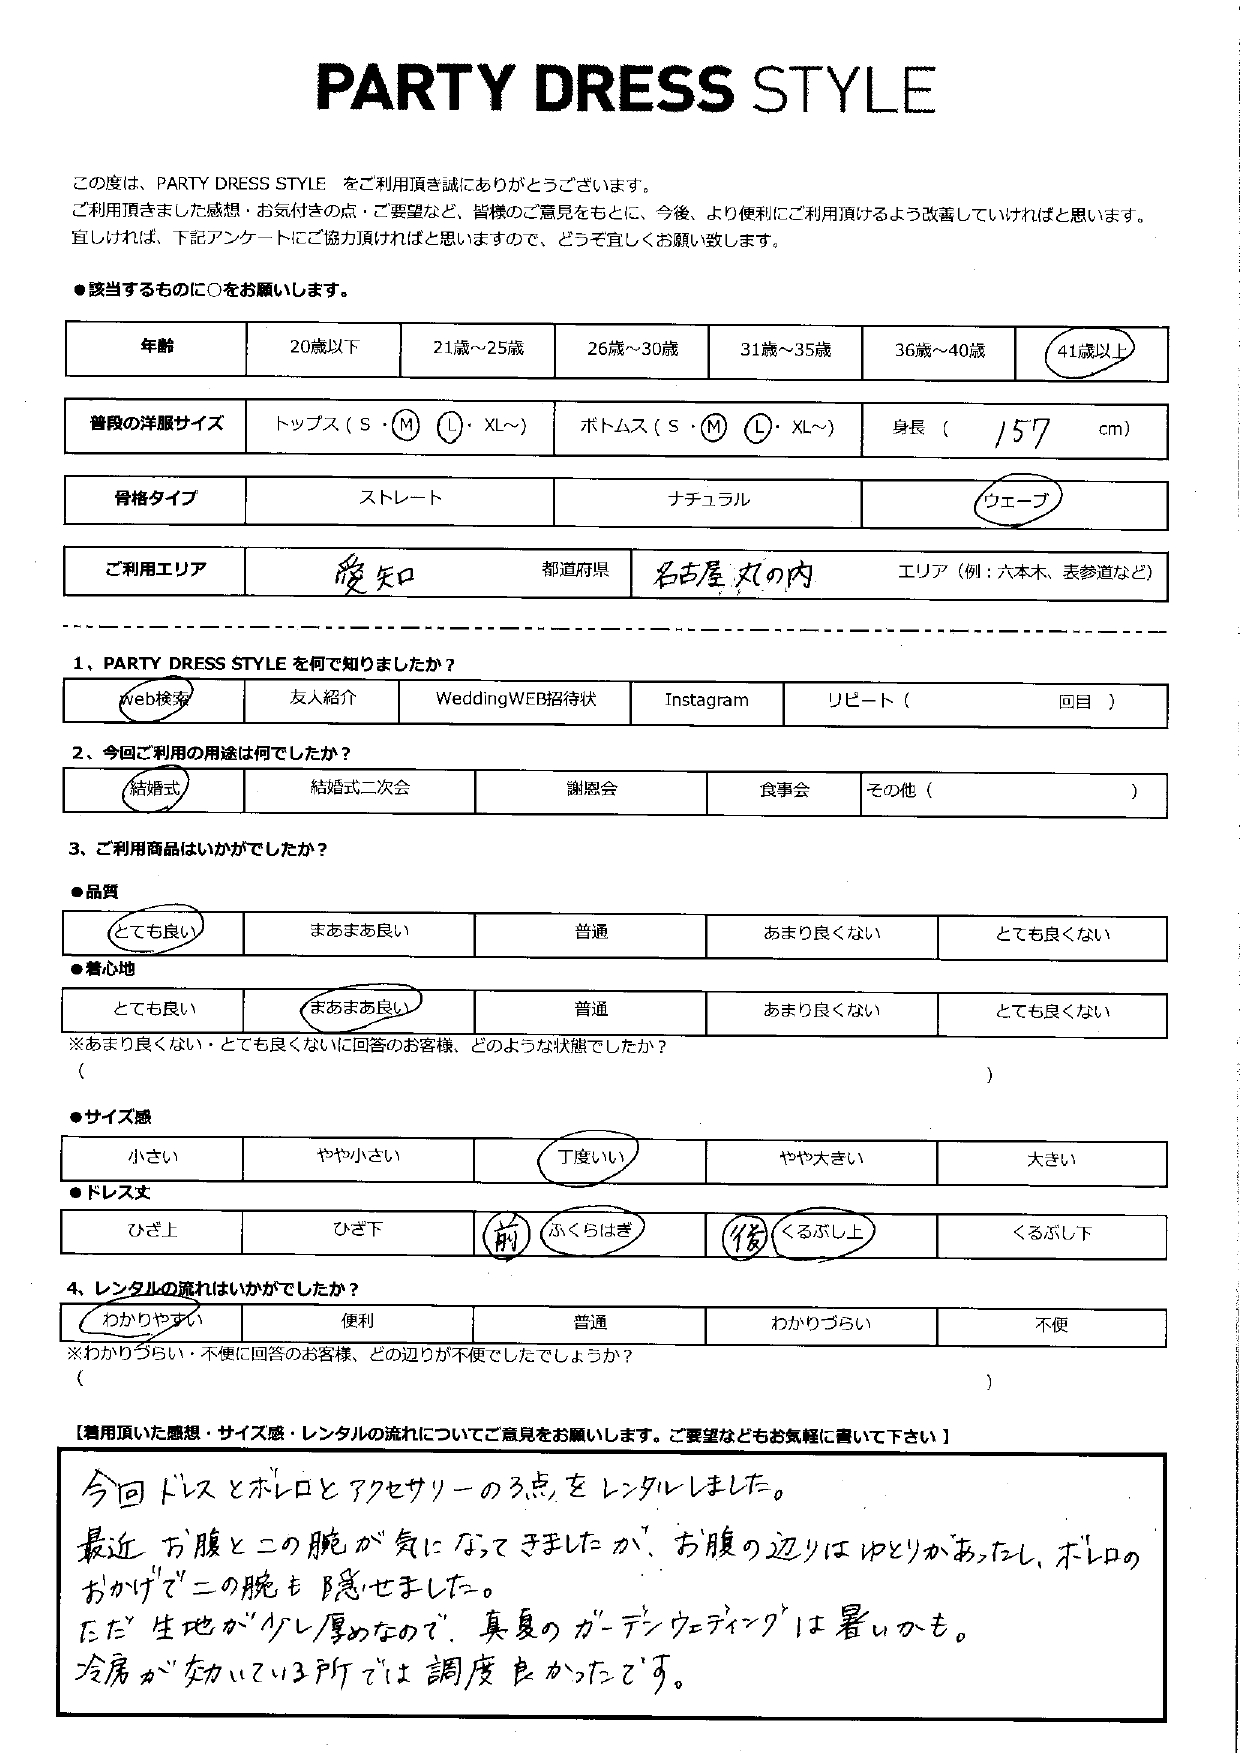 PARTY DRESS STYLE
この度は、PARTY DRESS STYLE をご利用頂き誠にありがとうございます。
ご利用頂きました感想・お気付きの点・ご要望など、皆様のご意見をもとに、今後、より便利にご利用頂けるよう改善していければと思います。
宜しければ、下記アンケートにご協力頂ければと思いますので、どうぞ宜しくお願い致します。
●該当するものに○をお願いします。
年齢 20歳以下 21歳～25歳 26歳～30歳 31歳～35歳 36歳～40歳 41歳以上
普段の洋服サイズ トップス ( S ・ M L ・ XL～) ボトムス ( S ・ M L ・ XL～) 身長 ( 157 cm)
骨格タイプ ストレート ナチュラル ウェーブ
ご利用エリア 愛知 都道府県 名古屋 丸の内 エリア（例：六本木、表参道など）
1、PARTY DRESS STYLE を何で知りましたか？
web検索 友人紹介 WeddingWEB招待状 Instagram リピート（ 回目 ）
2、今回ご利用の用途は何でしたか？
結婚式 結婚式二次会 謝恩会 食事会 その他（ ）
3、ご利用商品はいかがでしたか？
●品質
とても良い まあまあ良い 普通 あまり良くない とても良くない
●着心地
とても良い まあまあ良い 普通 あまり良くない とても良くない
※あまり良くない・とても良くないに回答のお客様、どのような状態でしたか？
( )
●サイズ感
小さい やや小さい 丁度いい やや大きい 大きい
●ドレス丈
ひざ上 ひざ下 前 ふくらはぎ 後 くるぶし上 くるぶし下
4、レンタルの流れはいかがでしたか？
わかりやすい 便利 普通 わかりづらい 不便
※わかりづらい・不便に回答のお客様、どの辺りが不便でしたでしょうか？
( )
【着用頂いた感想・サイズ感・レンタルの流れについてご意見をお願いします。ご要望などもお気軽に書いて下さい】
今回 ドレスとボレロとアクセサリーの3点をレンタルしました。
最近 お腹と二の腕が気になってきましたが、お腹の辺りはゆとりがあったし、ボレロの
おかげで二の腕も隠せました。
ただ 生地が少し厚めなので、真夏の ガーデンウェディングは暑いかも。
冷房が効いている所では調度良かったです。